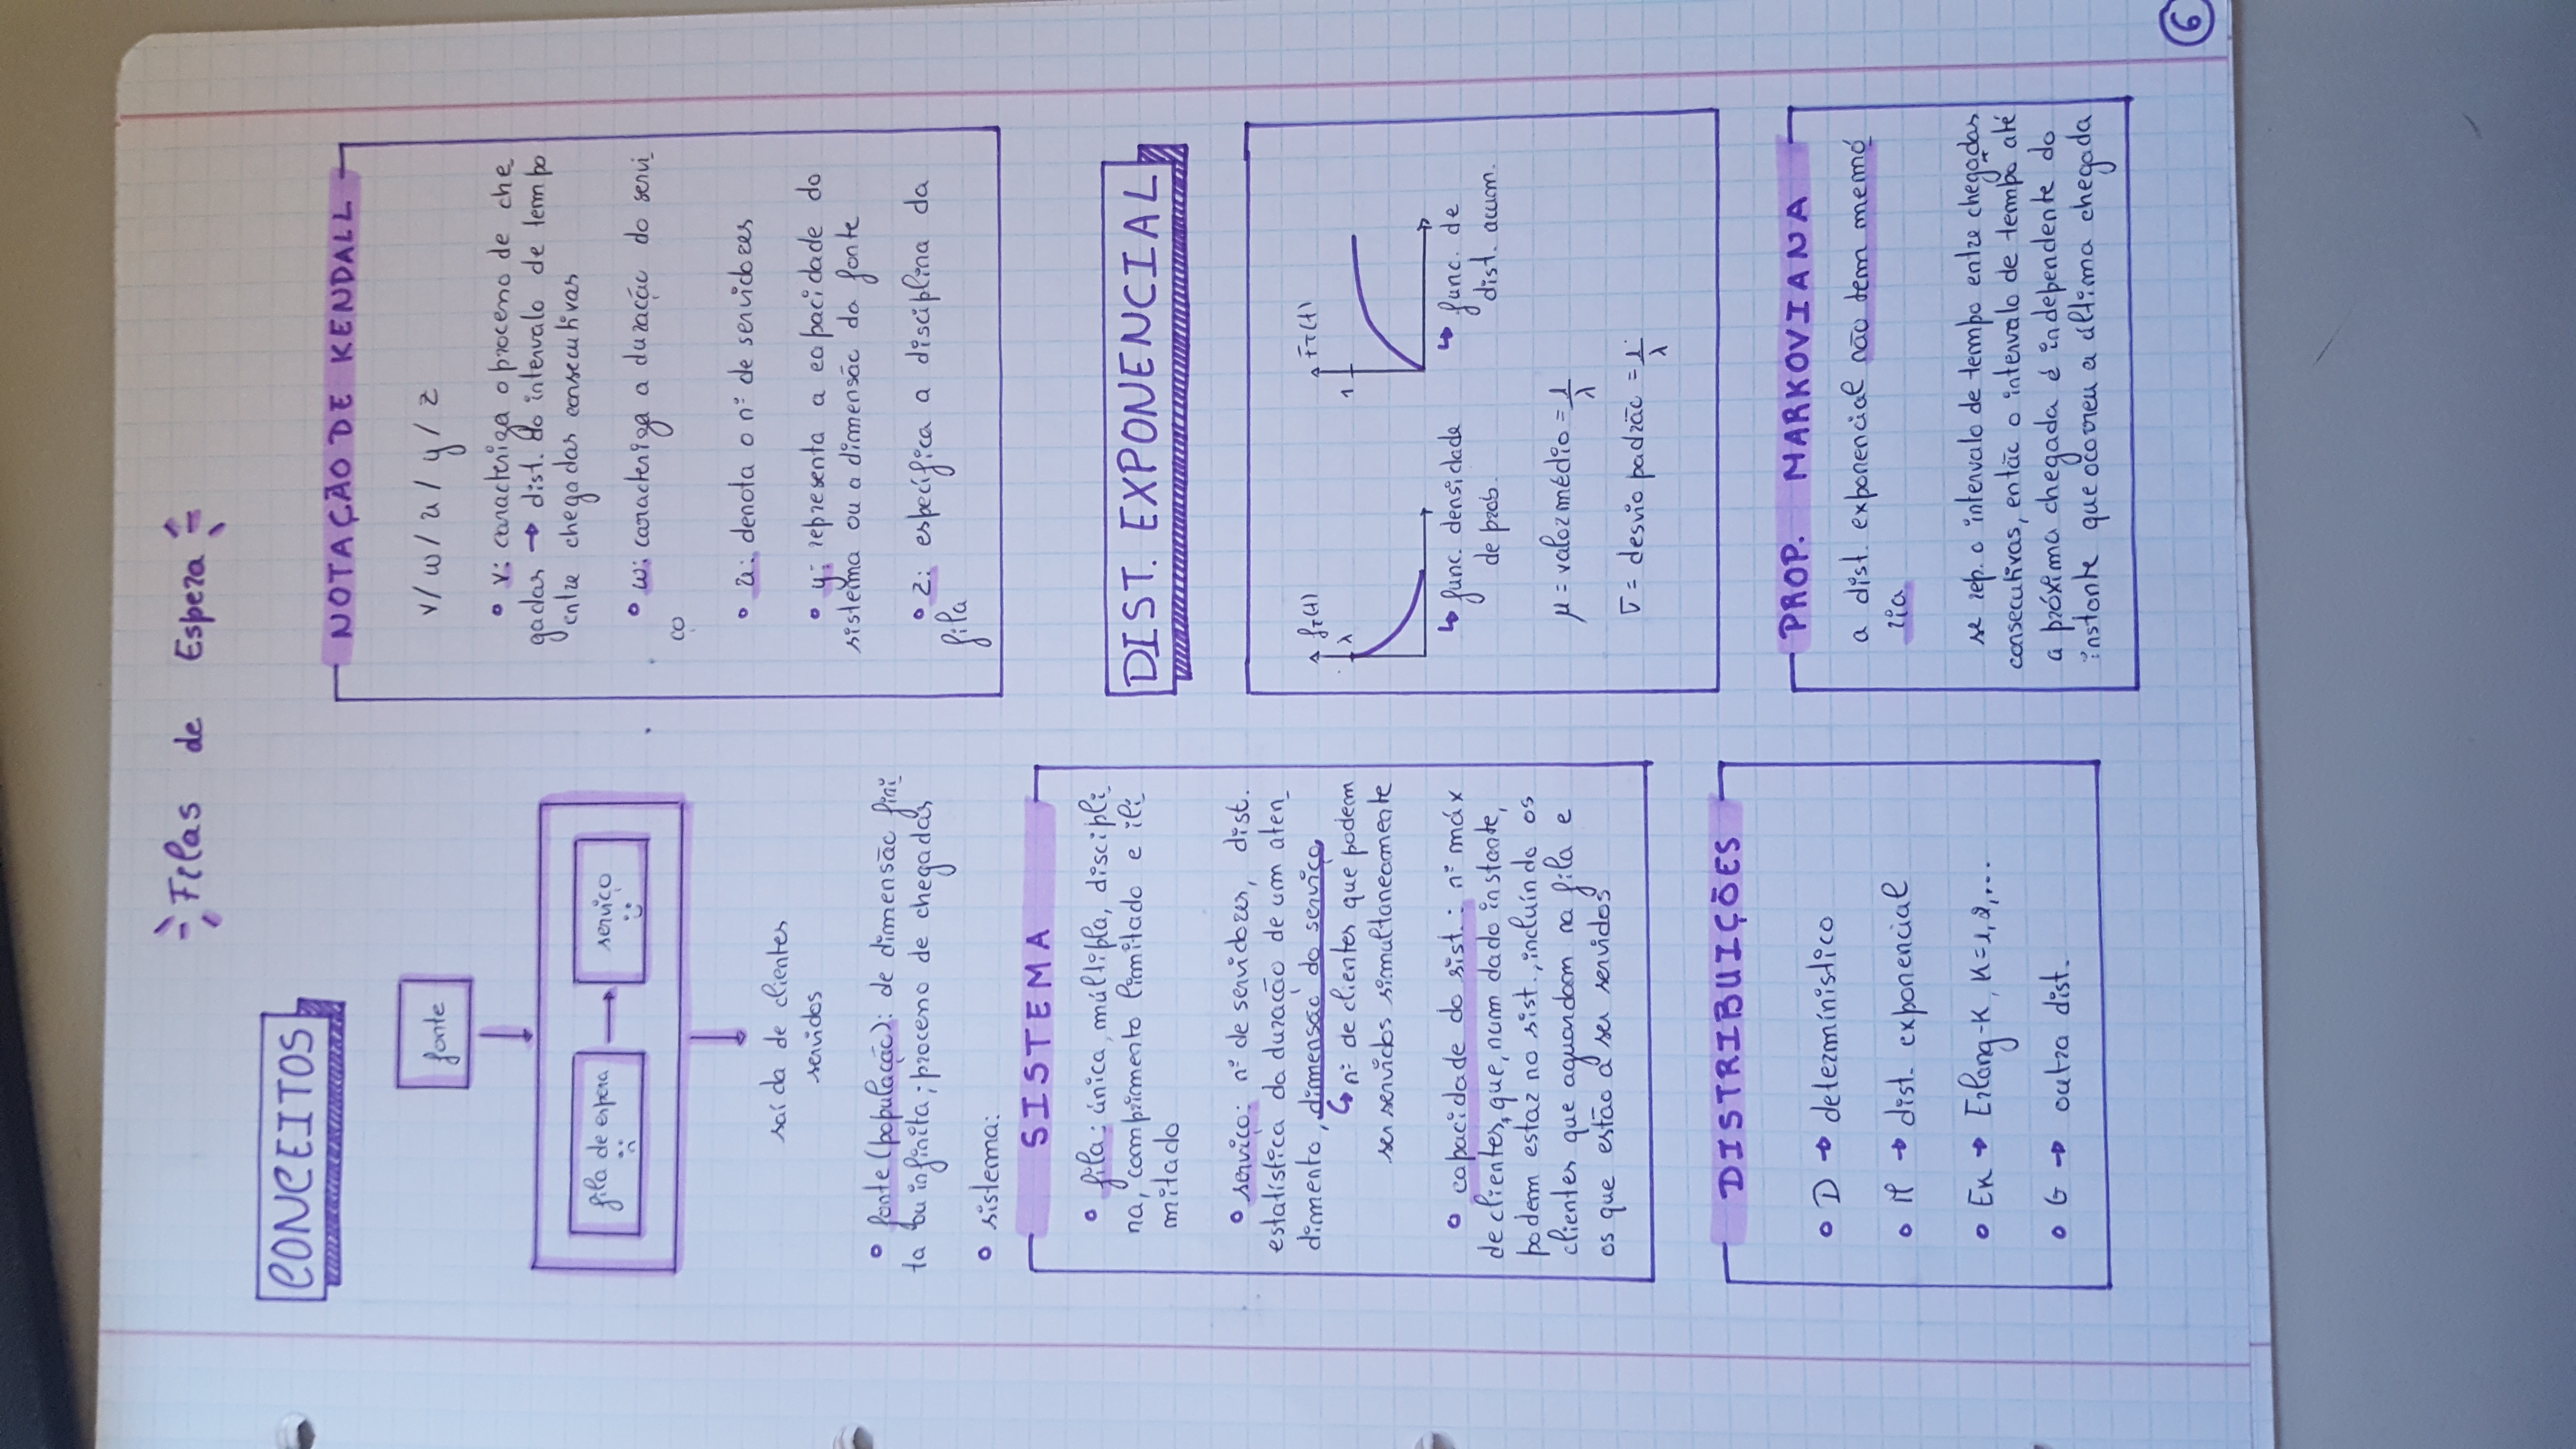 Filas de Espera
CONCEITOS
fonte
fila de espera
serviço
saída de clientes
servidos
• fonte (população): de dimensão fini_
ta ou infinita; processo de chegadas
• sistema:
SISTEMA
• fila: única, múltipla, discipli_
na, comprimento limitado e ili_
mitado
• serviço: nº de servidores, dist.
estatística da duração de um aten_
dimento, dimensão do serviço
↳ nº de clientes que podem
ser servidos simultaneamente
• capacidade do sist.: nº máx
de clientes, que, num dado instante,
podem estar no sist., incluindo os
clientes que aguardam na fila e
os que estão a ser servidos
DISTRIBUIÇÕES
• D → determinístico
• M → dist. exponencial
• EK → Erlang-K, K=1,2,...
• G → outra dist.
NOTAÇÃO DE KENDALL
v/w/x/y/z
• v: caracteriza o processo de che_
gadas → dist. do intervalo de tempo
entre chegadas consecutivas
• w: caracteriza a duração do servi_
ço
• x: denota o nº de servidores
• y: representa a capacidade do
sistema ou a dimensão da fonte
• z: especifica a disciplina da
fila
DIST. EXPONENCIAL
fT(t)
λ
↳ func. densidade
de prob.
FT(t)
1
↳ func. de
dist. acum.
μ = valor médio = 1/λ
σ = desvio padrão = 1/λ
PROP. MARKOVIANA
a dist. exponencial não tem memó_
ria
se rep. o intervalo de tempo entre chegadas
consecutivas, então o intervalo de tempo até
a próxima chegada é independente do
instante que ocorreu a última chegada
6